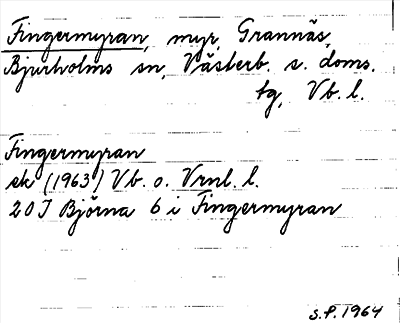 Fingermyran, myr, Grannäs,
Bjurholms sn, Västerb. s. doms.
tg, Vb. l.
Fingermyran
ek (1963) Vb. o. Vrnl. l.
20 J Björna 6 i Fingermyran
S.P. 1964